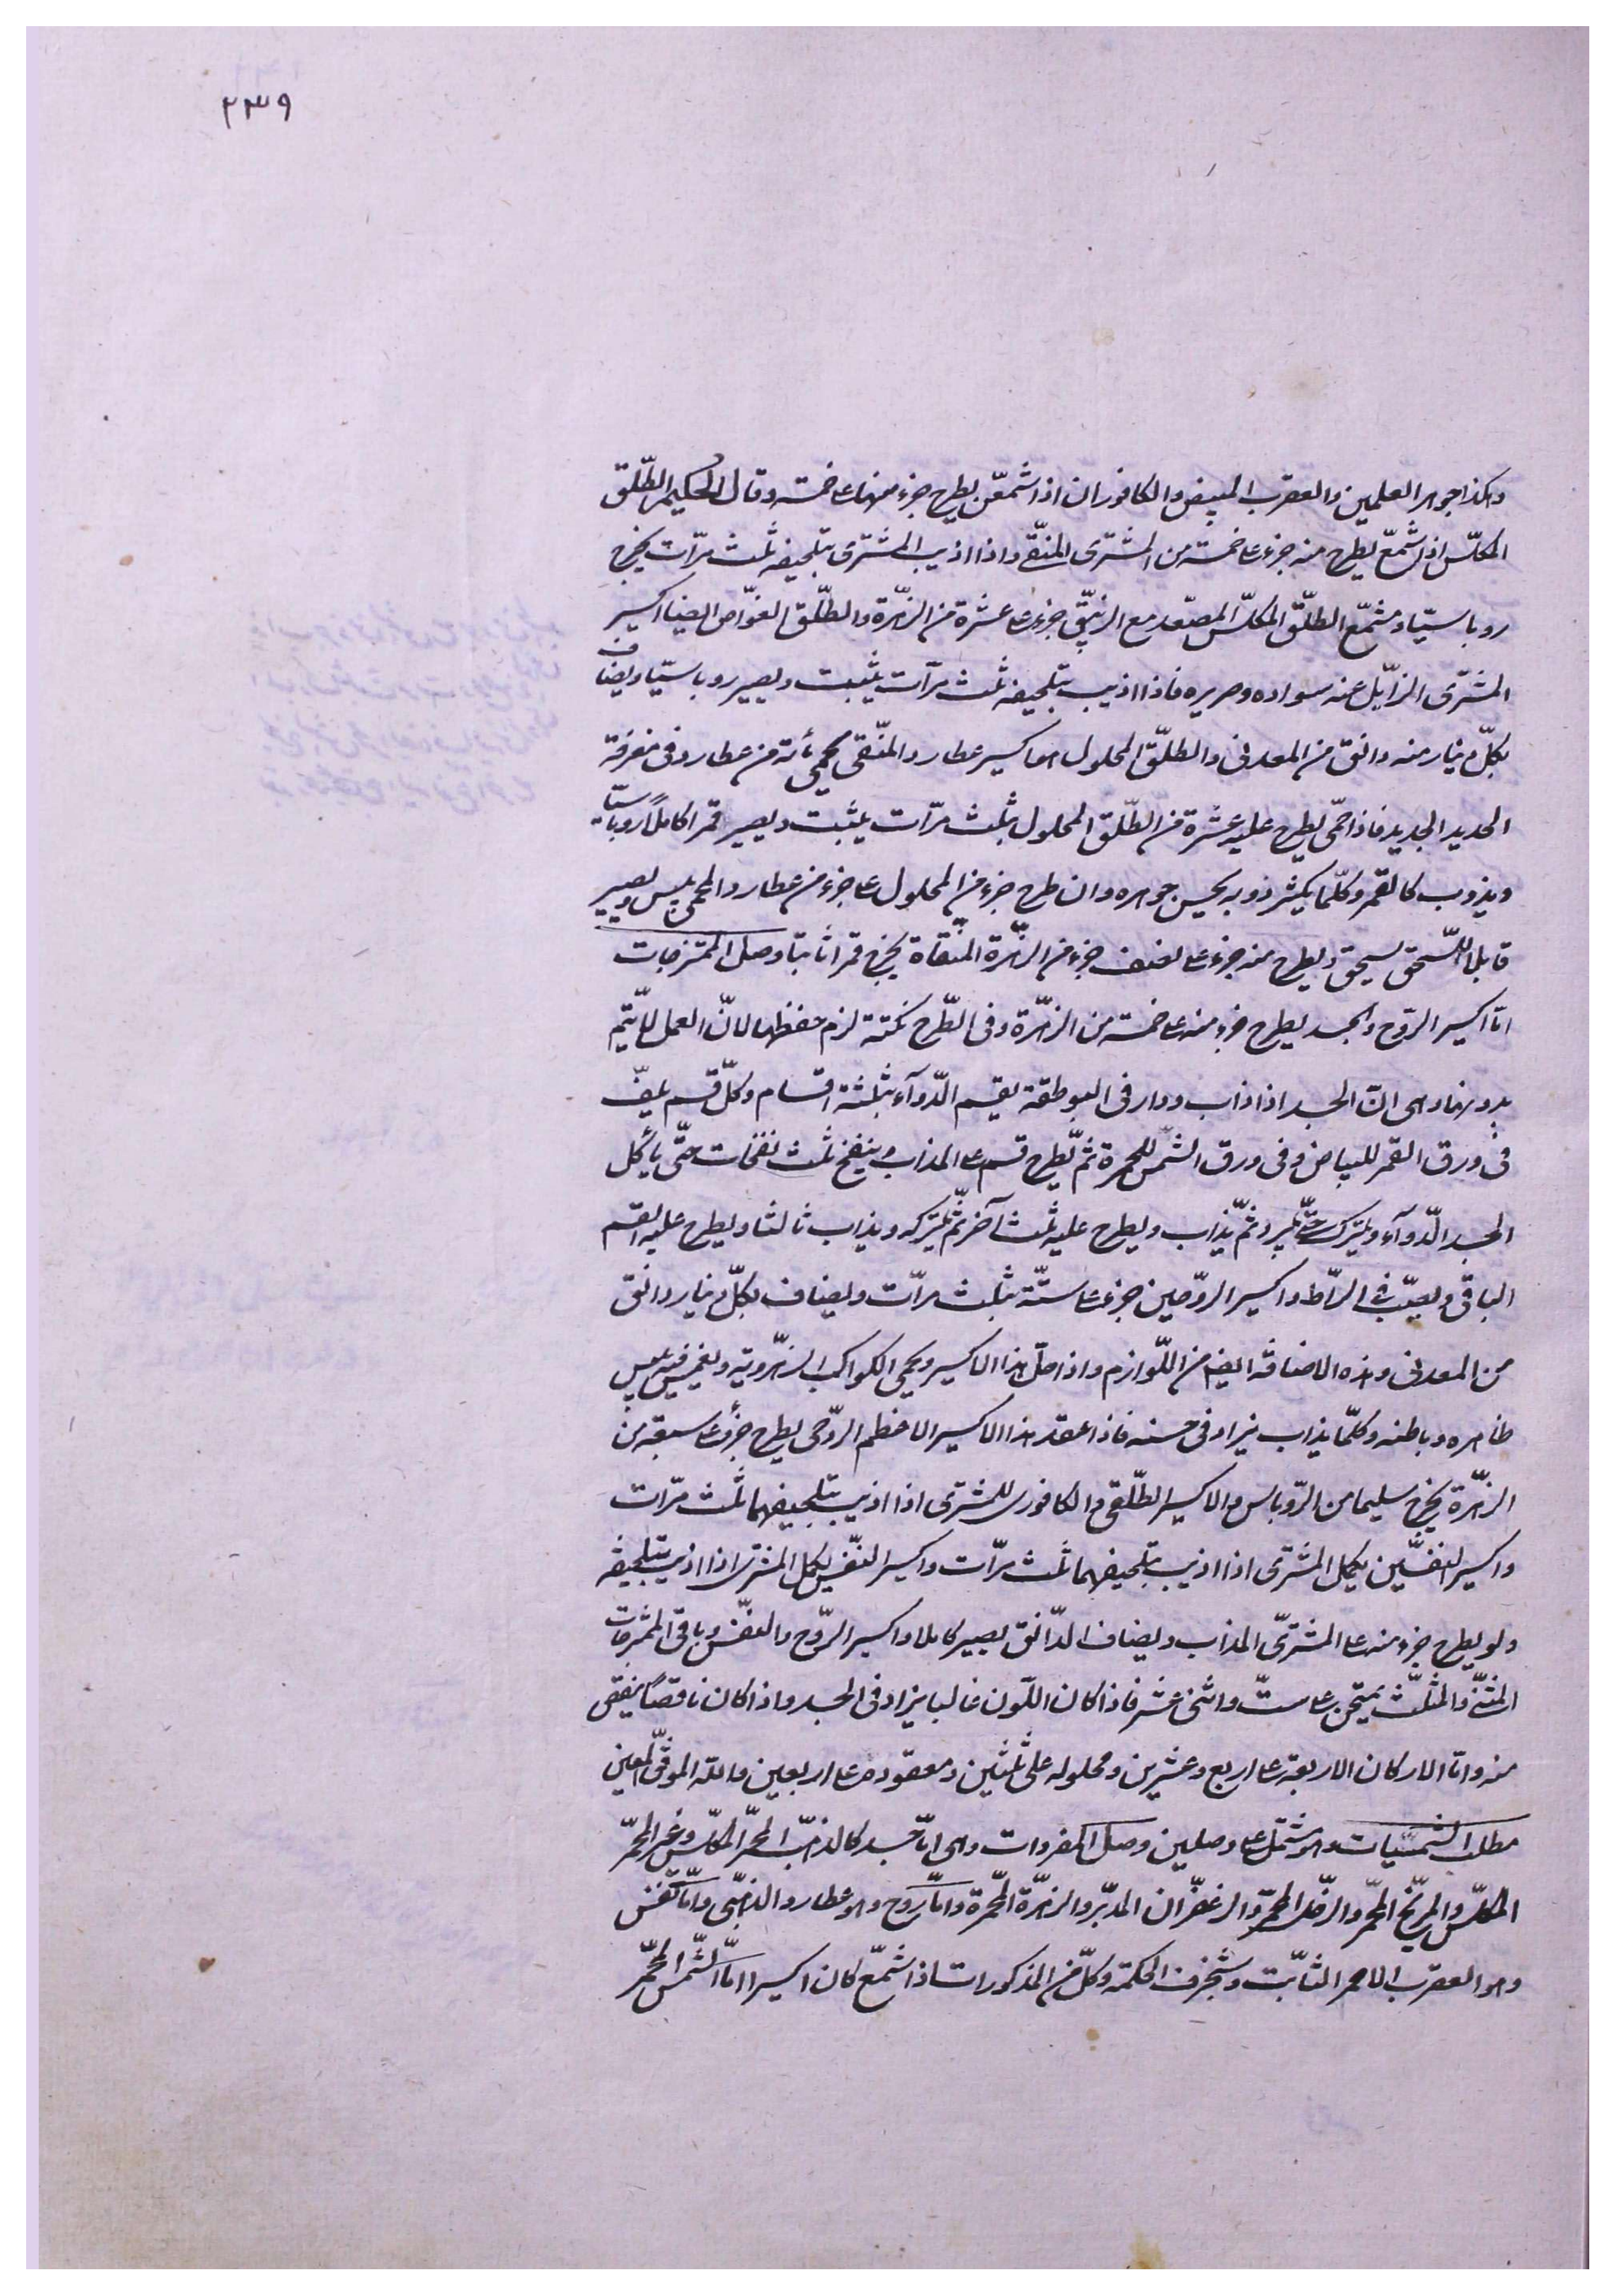 ٢٣٩
وكذا جوهر العلمين والعقرب المبيض والكافوران اذا شمعن يطرح جزء منها على خمسة وقال الحكيم الطلق
المكلس اذا شمع يطرح منه جزء على خمسة من المشترى المنقى واذا اذيب المشترى بتلحيفه ثلث مرات يخرج
روباسيا ومشمع الطلق المكلس المصعد مع الزيبق جزء على عشرة من الزهرة والطلق الغواص ايضا اكسير
المشترى الزايل عنه سواده وصريره فاذا اذيب بتلحيفه ثلث مرات يثبت ويصير روباسيا ويضاف
بكل دينار منه دانق من المعدنى والطلق المحلول هو اكسير عطارد المنقى يحمى مأته من عطارد فى مغرفة
الحديد الجديد فاذا حمى يطرح عليه عشرة من الطلق المحلول بثلث مرات يثبت ويصير قمرا كاملا روباسيا
ويذوب كالقمر وكلما يكثر ذوبه يحسن جوهره وان طرح جزء من المحلول على جزء من عطارد المحمى ييبس ويصير
قابلا للسحق يسحق ويطرح منه جزء على نصف جزء من الزهرة المنقاة يخرج قمرا ثابتا وصل الممتزجات
اما اكسير الروح والجسد يطرح جزء منه على خمسة من الزهرة وفى الطرح نكتة لزم حفظها لان العمل لا يتم
بدونها وهى ان الجسد اذا ذاب ودار فى البوطقة يقسم الدوآء بثلثة اقسام وكل قسم يلف
فى ورق القمر للبياض وفى ورق الشمس للحمرة ثم يطرح قسم على المذاب وينفخ ثلث نفخات حتى يأكل
الجسد الدوآء ويترك حتى يبرد ثم يذاب ويطرح عليه ثلث آخر ثم يترك ويذاب ثالثا ويطرح عليه القسم
الباقى ويصب فى الراط واكسير الروحين جزء على ستة بثلث مرات ويضاف بكل دينار دانق
من المعدنى وهذه الاضافة ايضا من اللوازم واذا حل هذا الاكسير ويحمى الكواكب الزهروية ويغمس فيه يبيض
ظاهره وباطنه وكلما يذاب يزاد فى حسنه فاذا عقد هذا الاكسير الاعظم الروحى يطرح جزء على سبعة من
الزهرة يخرج سليما من الروباس والاكسير الطلقى والكافورى للمشترى اذا اذيب بتلحيفهما ثلث مرات
واكسير النفسين يكمل المشترى اذا اذيب بتلحيفهما ثلث مرات واكسير النفس يكمل المشترى اذا اذيب بتلحيفه
ولو يطرح جزء منه على المشترى المذاب ويضاف الدانق يصير كاملا واكسير الروح والنفس وباقى الممتزجات
المثنى والمثلث يمتحن على ست واثنى عشر فاذا كان اللون غالبا يزاد فى الجسد واذا كان ناقصا ينقص
منه واما الاركان الاربعة على اربع وعشرين ومحلوله على ثلثين ومعقوده على اربعين والله الموفق المعين
مطلب الشمسيات وهو يشتمل على وصلين وصل المفردات وهى اما جسد كالذهب المحمر المكلس وغير المحمر
المكلس والمريخ المحمر والزحل المحمر والزعفران المدبر والزهرة المحمرة واما روح وهو عطارد الذهبى واما نفس
وهو العقرب الاحمر الثابت وشنجرف الحكمة وكل من المذكورات اذا شمع كان اكسيرا اما الشمس المحمر